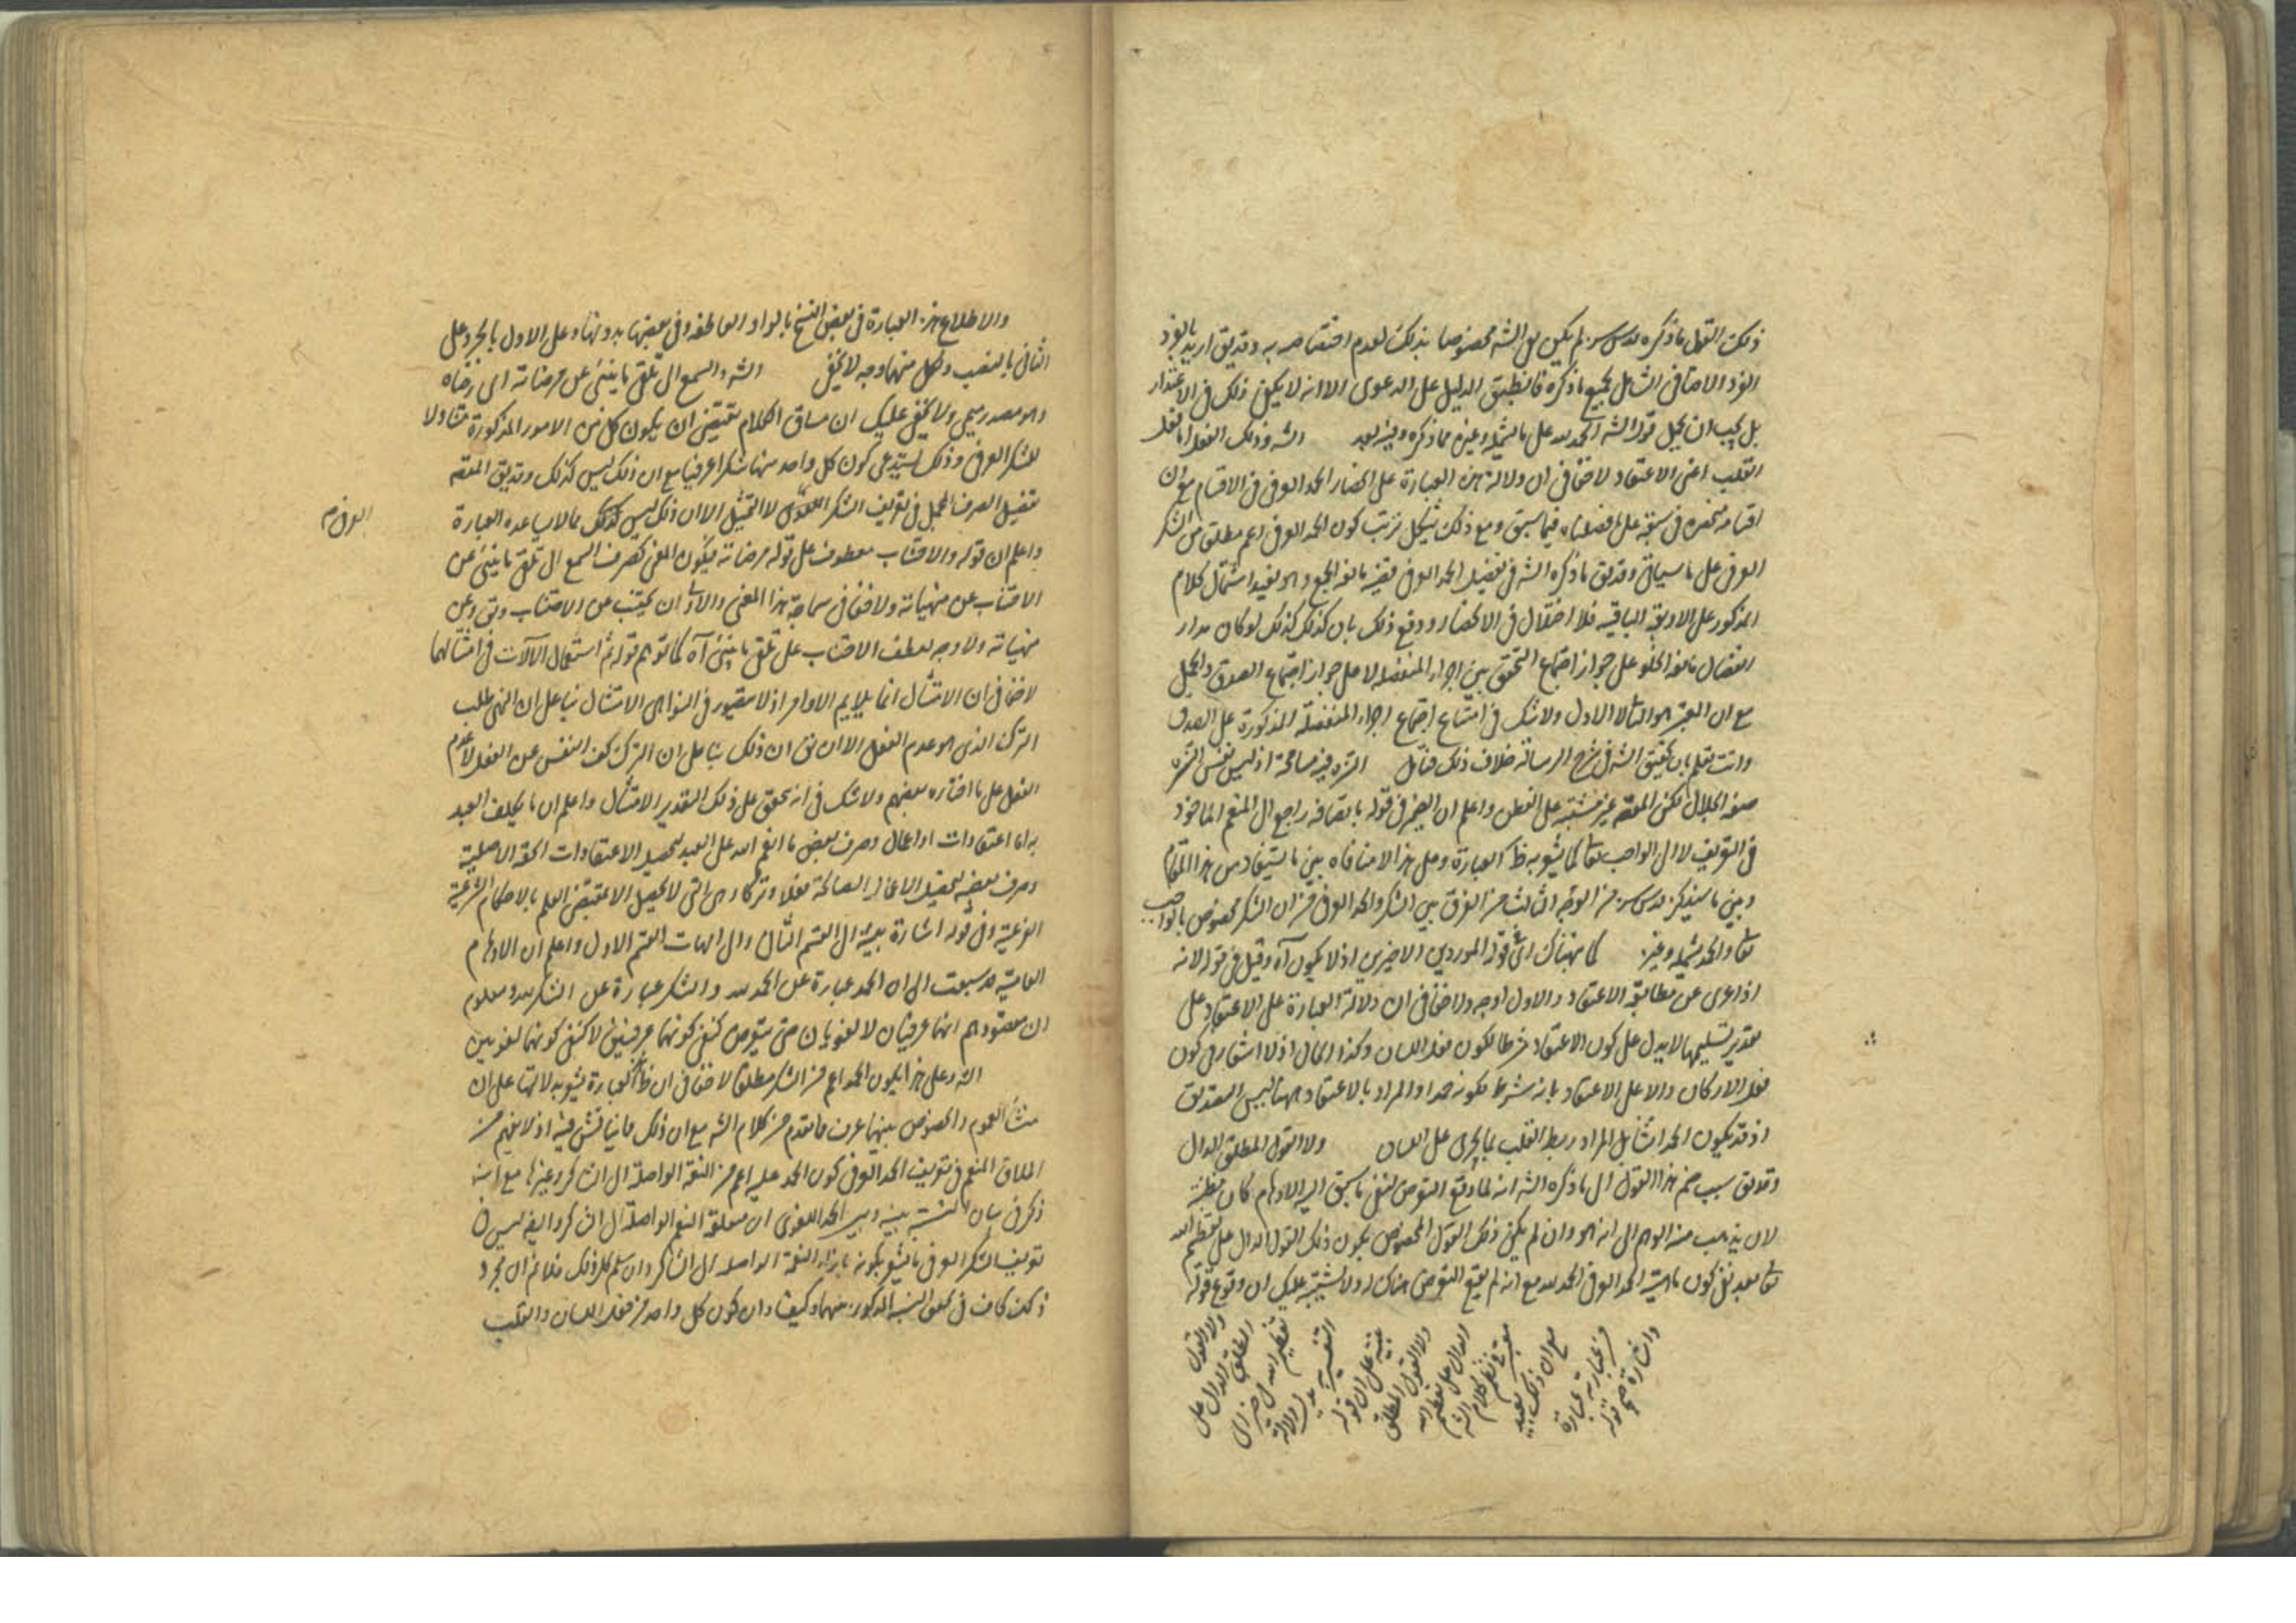 ذلك القول ما ذكره قدس سره لم يكن قول الشه مخصوصا بذلك لعدم اختصاصه به وقد يق اريد بالفرد
الفرد الاضافى الشامل لجميع ما ذكره فانطبق الدليل على الدعوى الا انه لا يكفى ذلك فى الاعتذار
بل يجب ان يحمل قول الشه الحمد لله على ما يشمله وغيره مما ذكره وفيه بعد الشه وذلك الفعل اما فعل
القلب اعنى الاعتقاد لا خفا فى ان دلالة هذه العبارة على انحصار الحمد العرفى فى الاقسام مع ان
اقسامه منحصرة فى سبعة على ما فصلناه فيما سبق ومع ذلك يشكل ترتب كون الحمد العرفى اعم مطلقا من الشكر
العرفى على ما سياتى وقد يق ما ذكره الشه فى تفصيل الحمد العرفى قضية مانعة الجمع وهو يفيد اشتمال كلام
المذكور على الاربعة الباقية فلا اختلال فى الانحصار ودفع ذلك بان كذلك كذلك لو كان مدار
انفصال مانعة الخلو على جواز اجتماع التحقق بين اجزاء المنفصلة لا على جواز اجتماع الصدق والحمل
مع ان المعتبر هو الثانى لا الاول ولا شك فى امتناع اجتماع اجزاء المنفصلة المذكورة على الصدق
وانت تعلم بان تحقيق الشه فى شرح الرسالة خلاف ذلك فتامل الشه فيه مسامحة اذ ليس نفس
صفة الجلال لكن المقصد غير مشتبه على الفطن واعلم ان الضمير فى قوله باتصافه راجع الى المنعم الماخوذ
فى التعريف لا الى الواجب تعالى كما يشعر به ظ العبارة وعلى هذا لا منافاة بين ما يستفاد من هذا المقام
وبين ما سيذكره قدس سره من الوجه الثالث من الفرق بين الشكر والحمد العرفى من ان الشكر مخصوص بالواجب
تعالى والحمد يشمله وغيره كما نبهناك اى فى قوله الموردين الاخيرين اذ لا يكون آه وقيل فى قوله لانه
اذا عرى عن مطابقة الاعتقاد والاول اوجه ولا خفا فى ان دلالة العبارة على الاعتقاد وعلى
تقدير تسليمها لا يدل على كون الاعتقاد شرطا لكون فعل اللسان وكذا الحال اذ لا اشعار فى كون
فعل الاركان دالا على الاعتقاد بانه شرط لكونه حمدا والمراد بالاعتقاد ههنا ليس التصديق
اذ قد يكون الحمد انشا بل المراد ربط القلب بما يجرى على اللسان ولا القول المطلق الدال
وقد يق سبب ضم هذا القول الى ما ذكره الشه انه لما وقع التعرض لنفى ما سبق اليه الاوهام كان مظنة
لان يذهب منه الوهم الى انه هو وان لم يكن ذلك القول المخصوص يكون ذلك القول الدال على تعظيم الله
تعالى بعد نفى كون ماهية الحمد العرفى الحمد لله مع انه لم يقع التعرض هناك له ولا يشتبه عليك ان وقوع قوله
ولا القول
المطلق الدال على
تعظيم الله
التفسير
على ان قوله
ولا القول المطلق
الدال على تعظيم الله
معتبر فى نظم كلام الشه
مع ان ذلك بعيد
من عبارته عبارة
واشارة قوله
والاطلاع هذه العبارة فى بعض النسخ بالواو العاطفة وفى بعضها بدونها وعلى الاول بالجر وعلى
الثانى بالنصب ولكل منهما وجه لا يخفى الشه والسمع الى تلقى ما ينبئ عن مرضاته اى رضاه
وهو مصدر ميمى ولا يخفى عليك ان مساق الكلام يقتضى ان يكون كل من الامور المذكورة متناولا
للشكر العرفى وذلك يستدعى كون كل واحد منها شكرا عرفيا مع ان ذلك ليس كذلك وقد يق المقصد
تفصيل الصرف المجمل فى تعريف الشكر اللغوى لا التمثيل الا ان ذلك ليس كذلك مما لا يساعده العبارة
العرفى م
واعلم ان قوله والاجتناب معطوف على قوله مرضاته فيكون المعنى كصرف السمع الى تلقى ما ينبئ عن
الاجتناب عن منهياته ولا خفا فى سماجة هذا المعنى والاولى ان يجتنب عن الاجتناب ويق وعن
منهياته ولا وجه لعطف الاجتناب على تلقى ما ينبئ آه كما توهم قوله ثم استعمال الآلات فى امتثالهما
لا خفا فى ان الامتثال انما يلايم الاوامر اذ لا يتصور فى النواهى الامتثال بناء على ان النهى طلب
الترك الذى هو عدم الفعل الا ان يق ان ذلك بنا على ان الترك كف النفس عن الفعل لا عدم
الفعل على ما اختاره بعضهم ولا شك فى انه يتحقق على ذلك التقدير الامتثال واعلم ان ما يكلف العبد
به اما اعتقادات او اعمال وصرف بعض ما انعم الله على العبد لتحصيل الاعتقادات الحقة الاصلية
وصرف بعضه لتحصيل الاعمال الصالحة فعلا وتركا وهى التى لا يحصل الا بمقتضى العلم بالاحكام الشرعية
الفرعية وفى قوله اشارة بديهة الى القسم الثانى والى الهيات القسم الاول واعلم ان الاوهام
العامية قد سبقت الى ان الحمد عبارة عن الحمد لله والشكر عبارة عن الشكر لله ومعلوم
ان مقصودهم انهما عرفيان لا لغويان حتى يتعرض لنفى كونهما عرفيين لا لنفى كونهما لغويين
الشه وعلى هذا يكون الحمد اعم من الشكر مطلقا لا خفا فى ان ظ العبارة يشعر بدلالتها على ان
منشأ العموم والخصوص بينهما عرف مما تقدم من كلام الشه مع ان ذلك مما يناقش فيه اذ لا يفهم من
اطلاق المنعم فى تعريف الحمد العرفى كون الحمد عليه اعم من النعمة الواصلة الى الشاكر وغيرها مع انه
ذكر فى بيان النسبة بينه وبين الحمد اللغوى ان متعلقه النعم الواصلة الى الشاكر وايضا ليس فى
تعريف الشكر العرفى ما يشعر بكونه بازاء النعمة الواصلة الى الشاكر وان سلم كل ذلك فلا نم ان مجرد
ذلك كاف فى تحقق النسبة المذكورة بينهما وكيف وان كون كل واحد من فعل اللسان والقلب